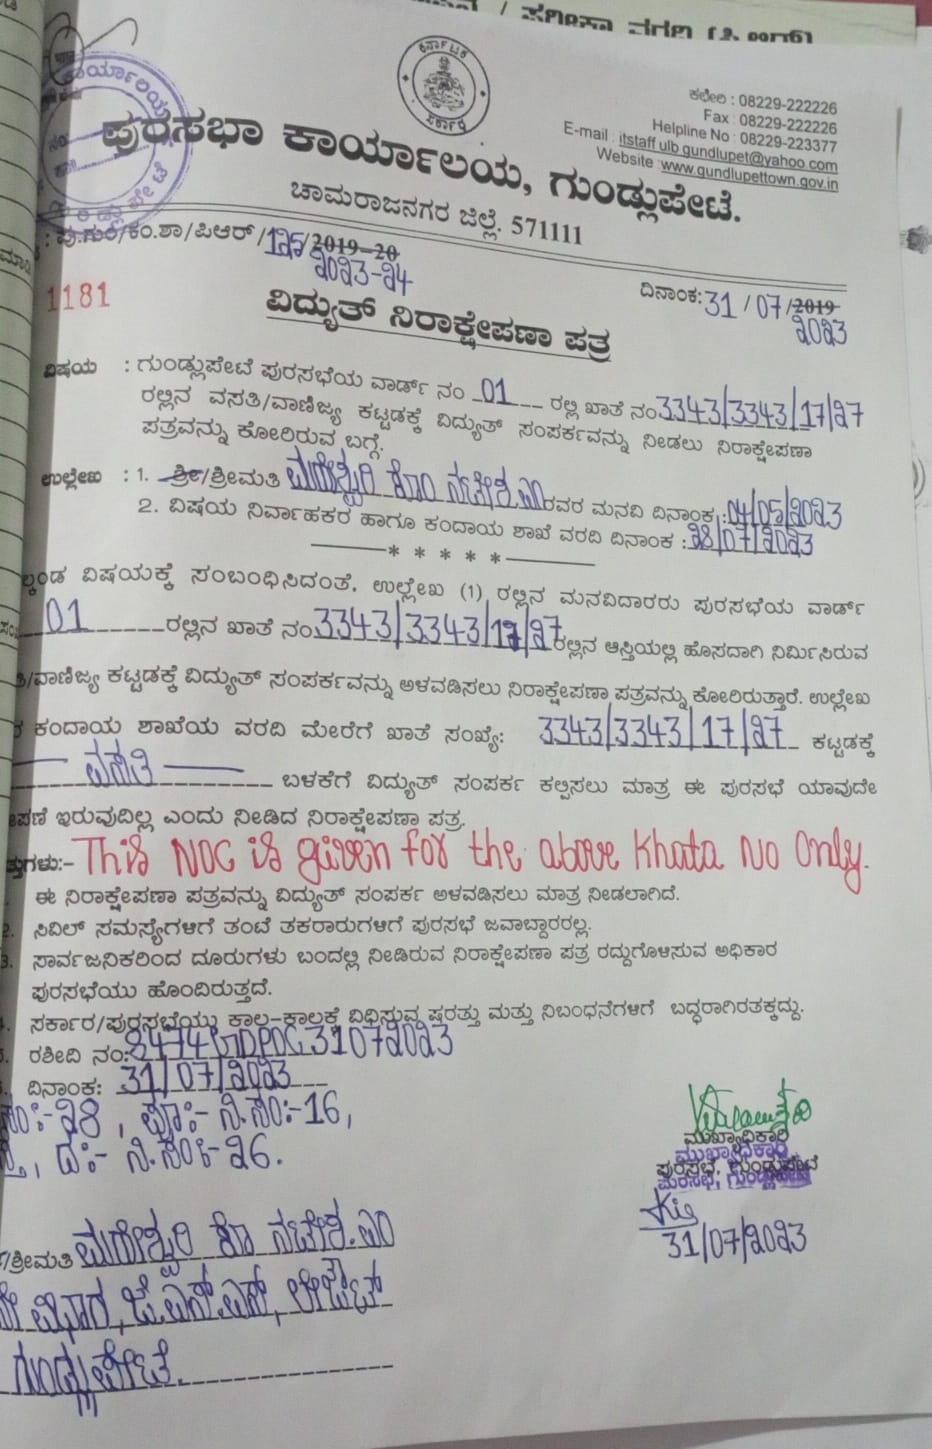 ಕರ್ನಾಟಕ ಸರ್ಕಾರ
ಕಾರ್ಯಾಲಯ
ಕಛೇರಿ : 08229-222226
Fax : 08229-222226
Helpline No : 08229-223377
E-mail : itstaff ulb gundlupet@yahoo.com
Website : www.gundlupettown.gov.in
ಪುರಸಭಾ ಕಾರ್ಯಾಲಯ, ಗುಂಡ್ಲುಪೇಟೆ.
ಚಾಮರಾಜನಗರ ಜಿಲ್ಲೆ. 571111
: ಪು.ಗುಂ/ಕಂ.ಶಾ/ಪಿಆರ್/125/2019-20
2023-24
ದಿನಾಂಕ: 31/07/2019
2023
1181
ವಿದ್ಯುತ್ ನಿರಾಕ್ಷೇಪಣಾ ಪತ್ರ
ವಿಷಯ : ಗುಂಡ್ಲುಪೇಟೆ ಪುರಸಭೆಯ ವಾರ್ಡ್ ನಂ 01 ರಲ್ಲಿ ಖಾತೆ ನಂ 3343/3343/17/27
ರಲ್ಲಿನ ವಸತಿ/ವಾಣಿಜ್ಯ ಕಟ್ಟಡಕ್ಕೆ ವಿದ್ಯುತ್ ಸಂಪರ್ಕವನ್ನು ನೀಡಲು ನಿರಾಕ್ಷೇಪಣಾ
ಪತ್ರವನ್ನು ಕೋರಿರುವ ಬಗ್ಗೆ.
ಉಲ್ಲೇಖ : 1. ಶ್ರೀ/ಶ್ರೀಮತಿ ಮಹೇಶ್ವರಿ ಕೋಂ ನಟೇಶ.ಎಂ ರವರ ಮನವಿ ದಿನಾಂಕ :04/05/2023
2. ವಿಷಯ ನಿರ್ವಾಹಕರ ಹಾಗೂ ಕಂದಾಯ ಶಾಖೆ ವರದಿ ದಿನಾಂಕ :28/07/2023
* * * * *
ಲ್ಕಂಡ ವಿಷಯಕ್ಕೆ ಸಂಬಂಧಿಸಿದಂತೆ, ಉಲ್ಲೇಖ (1) ರಲ್ಲಿನ ಮನವಿದಾರರು ಪುರಸಭೆಯ ವಾರ್ಡ್
01 ರಲ್ಲಿನ ಖಾತೆ ನಂ 3343/3343/17/27 ರಲ್ಲಿನ ಆಸ್ತಿಯಲ್ಲಿ ಹೊಸದಾಗಿ ನಿರ್ಮಿಸಿರುವ
ತಿ/ವಾಣಿಜ್ಯ ಕಟ್ಟಡಕ್ಕೆ ವಿದ್ಯುತ್ ಸಂಪರ್ಕವನ್ನು ಅಳವಡಿಸಲು ನಿರಾಕ್ಷೇಪಣಾ ಪತ್ರವನ್ನು ಕೋರಿರುತ್ತಾರೆ. ಉಲ್ಲೇಖ
ರ ಕಂದಾಯ ಶಾಖೆಯ ವರದಿ ಮೇರೆಗೆ ಖಾತೆ ಸಂಖ್ಯೆ: 3343/3343/17/27 ಕಟ್ಟಡಕ್ಕೆ
ವಸತಿ ಬಳಕೆಗೆ ವಿದ್ಯುತ್ ಸಂಪರ್ಕ ಕಲ್ಪಿಸಲು ಮಾತ್ರ ಈ ಪುರಸಭೆ ಯಾವುದೇ
ೇಪಣೆ ಇರುವುದಿಲ್ಲ ಎಂದು ನೀಡಿದ ನಿರಾಕ್ಷೇಪಣಾ ಪತ್ರ.
ತ್ತುಗಳು:- This NOC is given for the above Khata No Only.
ಈ ನಿರಾಕ್ಷೇಪಣಾ ಪತ್ರವನ್ನು ವಿದ್ಯುತ್ ಸಂಪರ್ಕ ಅಳವಡಿಸಲು ಮಾತ್ರ ನೀಡಲಾಗಿದೆ.
2. ಸಿವಿಲ್ ಸಮಸ್ಯೆಗಳಿಗೆ ತಂಟೆ ತಕರಾರುಗಳಿಗೆ ಪುರಸಭೆ ಜವಾಬ್ದಾರರಲ್ಲ.
3. ಸಾರ್ವಜನಿಕರಿಂದ ದೂರುಗಳು ಬಂದಲ್ಲಿ ನೀಡಿರುವ ನಿರಾಕ್ಷೇಪಣಾ ಪತ್ರ ರದ್ದುಗೊಳಿಸುವ ಅಧಿಕಾರ
ಪುರಸಭೆಯು ಹೊಂದಿರುತ್ತದೆ.
ಸರ್ಕಾರ/ಪುರಸಭೆಯು ಕಾಲ-ಕಾಲಕ್ಕೆ ವಿಧಿಸುವ ಷರತ್ತು ಮತ್ತು ನಿಬಂಧನೆಗಳಿಗೆ ಬದ್ಧರಾಗಿರತಕ್ಕದ್ದು.
ರಶೀದಿ ನಂ:
ದಿನಾಂಕ: 31/07/2023
:-28, ಪೂ:- ನಿ.ಸಂ:-16,
, ದ:- ನಿ.ಸಂ:-26.
ಮುಖ್ಯಾಧಿಕಾರಿ
ಮುಖ್ಯಾಧಿಕಾರಿ
ಪುರಸಭೆ, ಗುಂಡ್ಲುಪೇಟೆ
ಪುರಸಭೆ, ಗುಂಡ್ಲುಪೇಟೆ
31/07/2023
/ಶ್ರೀಮತಿ ಮಹೇಶ್ವರಿ ಕೋ ನಟೇಶ.ಎಂ
ಜೆ.ಎಸ್.ಎಸ್, ಲೇಔಟ್
ಗುಂಡ್ಲುಪೇಟೆ.